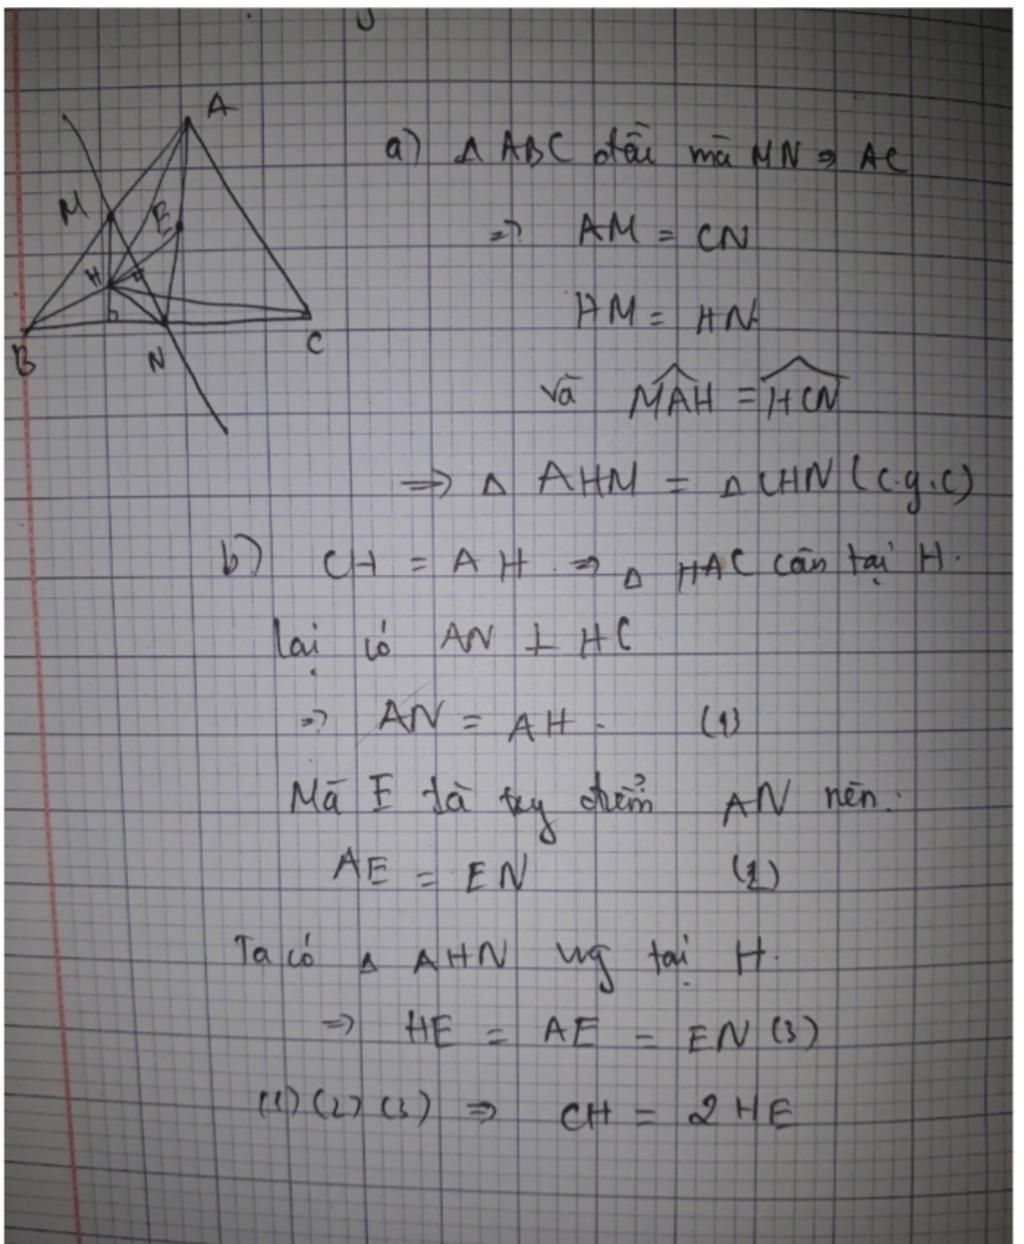 A
M
E
H
B
N
C
a) Δ ABC đều mà MN ⇒ AC
⇒ AM = CN
HM = HN
Và \widehat{MAH} = \widehat{HCN}
⇒ Δ AHM = Δ CHN (c.g.c)
b) CH = AH ⇒ Δ HAC cân tại H.
lại có AN ⊥ HC
⇒ AN = AH. (1)
Mà E là điểm AN nên.
AE = EN (2)
Ta có Δ AHN vg tại H.
⇒ HE = AE = EN (3)
(1) (2) (3) ⇒ CH = 2 HE